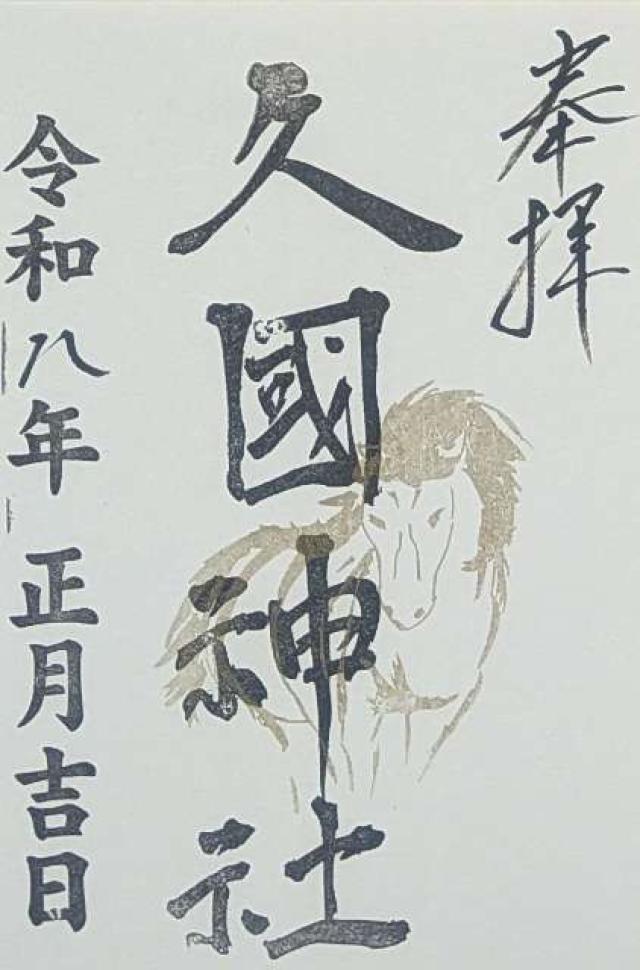 奉拝
久國神社
令和八年 正月吉日